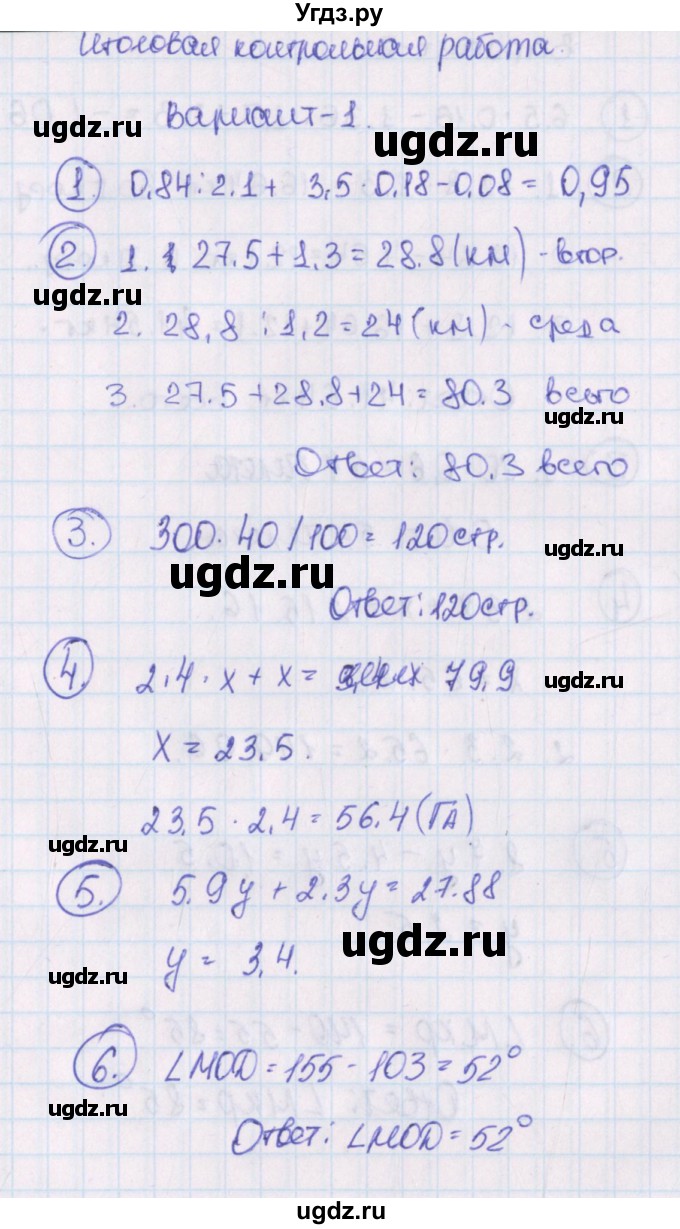 Угдз.ру
Итоговая контрольная работа.
Вариант-1.
ugdz.ru
ugdz.ru
1. 0,84:2.1+ 3,5·0,18-0,08= 0,95
2. 1. 27.5+1,3=28.8(км) - втор.
ugdz.ru
ugdz.ru
2. 28,8 :1,2=24(км) - среда
3. 27.5+28.8+24=80.3 всего
ugdz.ru
Ответ: 80.3 всего
3. 300·40/100=120стр.
ugdz.ru
Ответ:120стр.
4. 2,4·x+x= 79,9
ugdz.ru
x=23,5.
23,5·2,4=56.4(га)
ugdz.ru
5. 5.9y+2.3y=27.88
ugdz.ru
y= 3,4.
ugdz.ru
6. ∠MOD=155-103=52°
ugdz.ru
Ответ: ∠MOD=52°
ugdz.ru
ugdz.ru